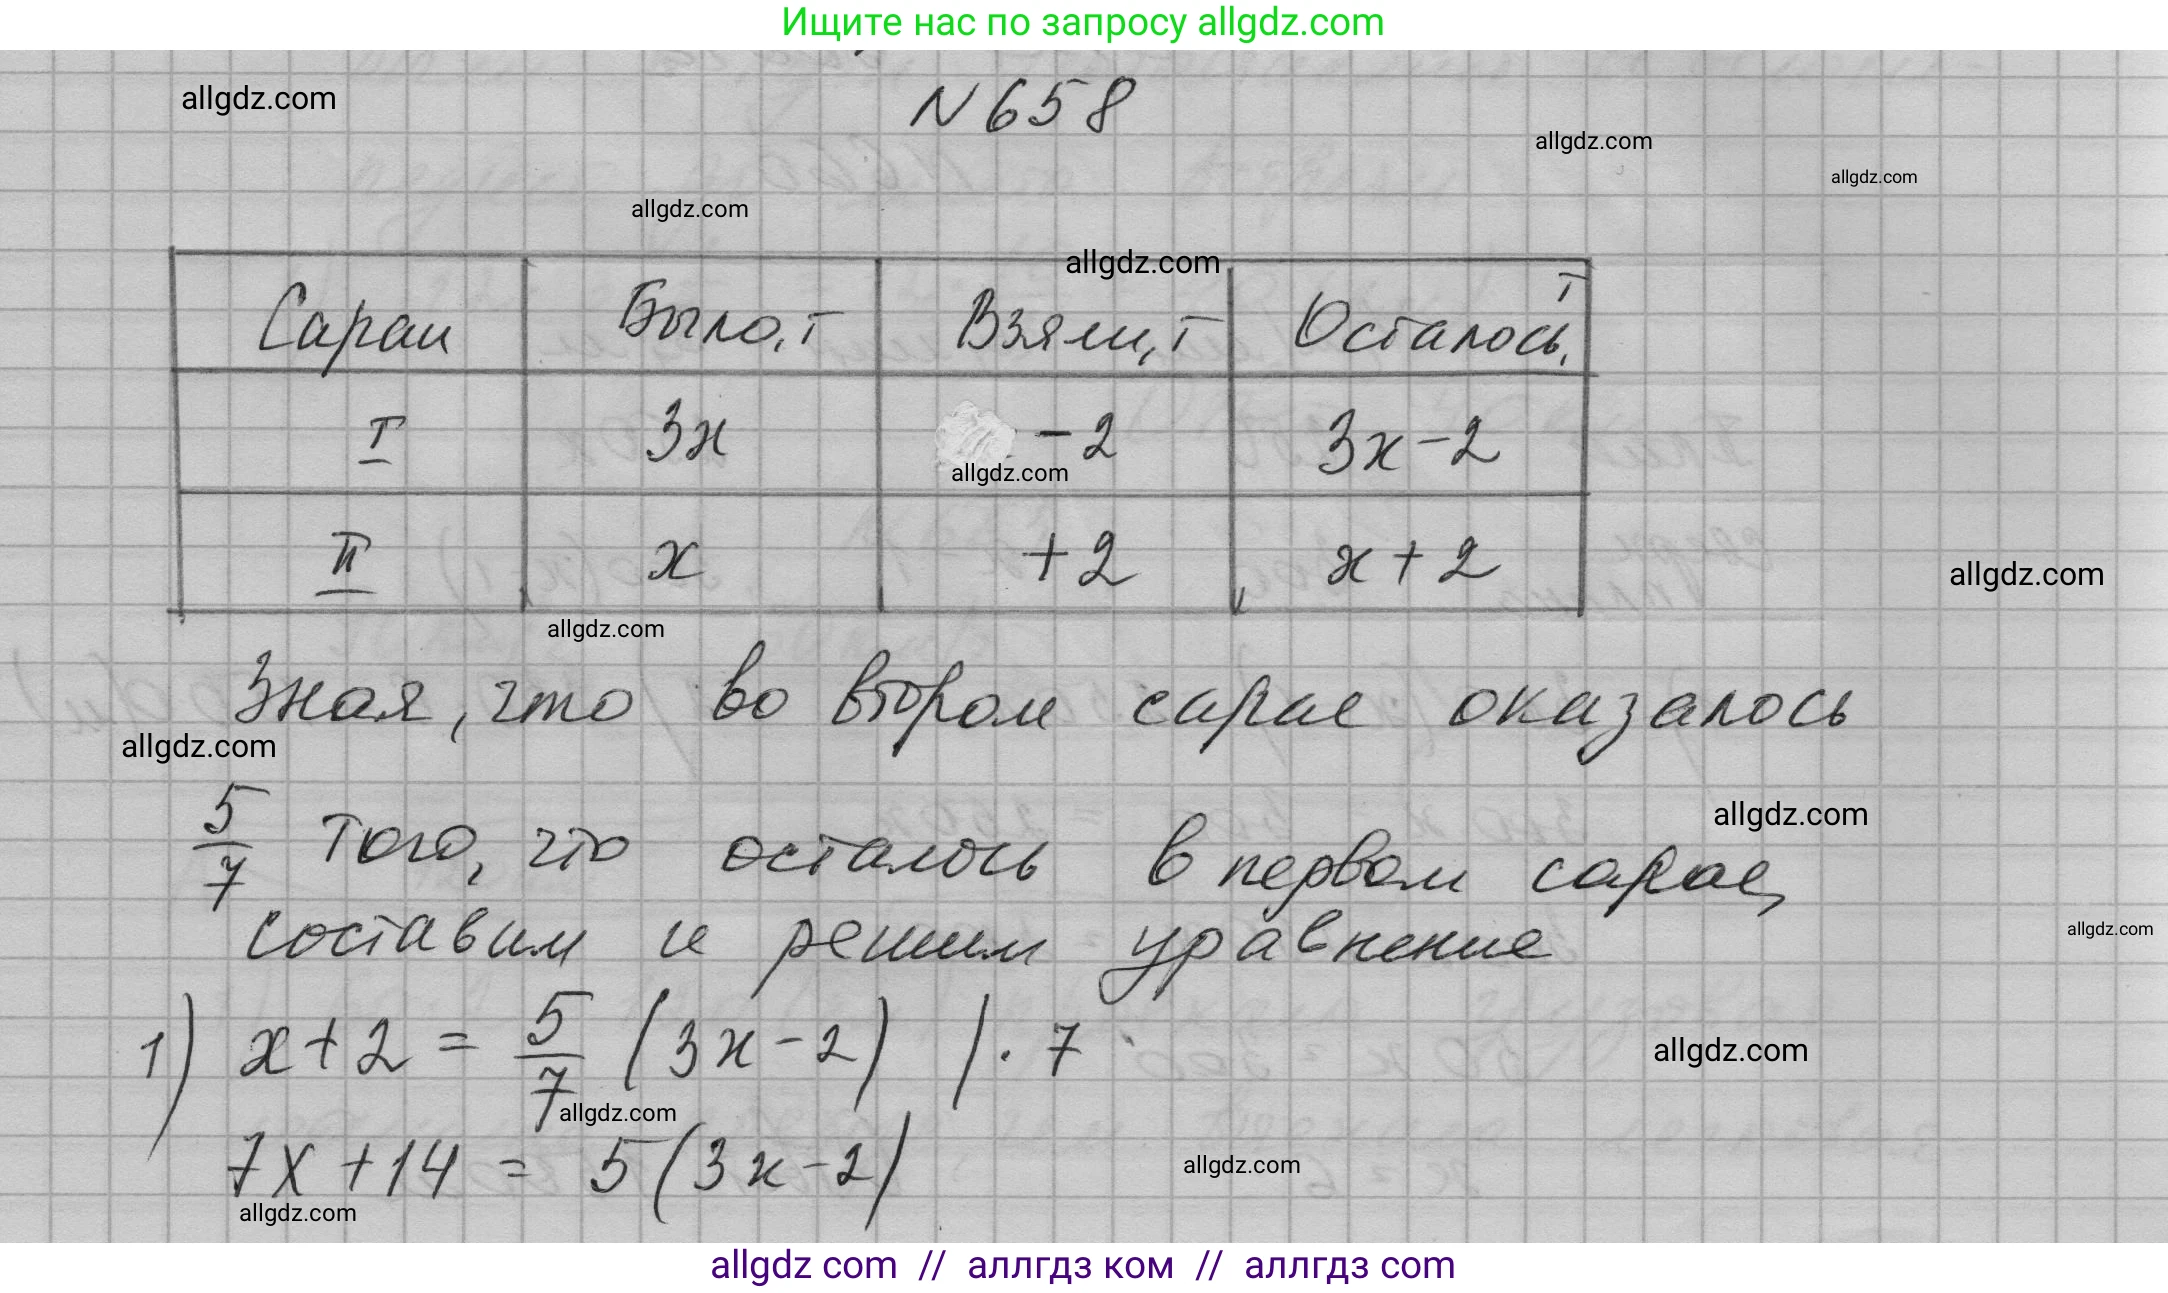 Ищите нас по запросу allgdz.com
allgdz.com
N 658
allgdz.com
allgdz.com
allgdz.com
allgdz.com
Сараи Было, т Взяли, т Осталось, т
I 3x -2 3x-2
allgdz.com
II x +2 x+2
allgdz.com
allgdz.com
Зная, что во втором сарае оказалось
allgdz.com
allgdz.com
5/7 того, что осталось в первом сарае,
allgdz.com
составим и решим уравнение
1) x+2 = 5/7 (3x-2) | · 7
allgdz.com
allgdz.com
7x+14 = 5(3x-2)
allgdz.com
allgdz.com
allgdz com // аллгдз ком // аллгдз com